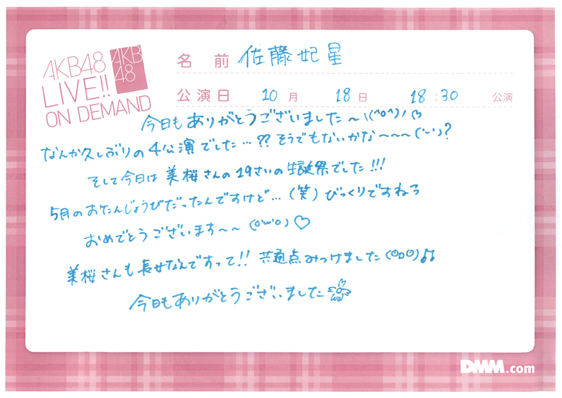 AKB48
LIVE!!
ON DEMAND
AKB
48
名 前 佐藤妃星
公演日 10月 18日 18:30 公演
今日もありがとうございました～\(^o^)/♡
なんか久しぶりの4公演でした…?? そうでもないかな～～～(˙-˙)?
そして今日は美桜さんの19さいの生誕祭でした!!!
5月のおたんじょうびだったんですけど…(笑)びっくりですねる
おめでとうございます～～(o'ω'o)♡
美桜さんも長せなんですって!! 共通点みつけました(ºOº)♪♪
今日もありがとうございました
DMM.com